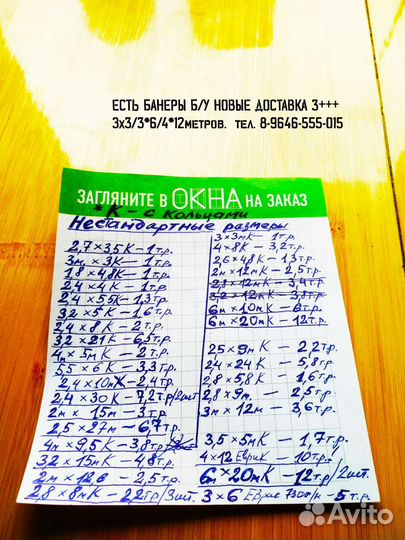 ЕСТЬ БАНЕРЫ Б/У НОВЫЕ ДОСТАВКА 3+++
3х3/3*6/4*12МЕТРОВ. ТЕЛ. 8-9646-555-015
ЗАГЛЯНИТЕ В ОКНА НА ЗАКАЗ
* К – с кольцами
Нестандартные размеры
2,7 × 3,5 К – 1 т.р.
3м × 3К – 1 т.р.
1,8 × 4,8 К – 1 т.р.
2,4 × 4 К – 1 т.р.
2,4 × 5,5 К – 1,3 т.р.
3,2 × 5 К – 1,6 т.р.
2,4 × 8 К – 2 т.р.
3,2 × 21 К – 6,5 т.р.
4м × 5м К – 2 т.р.
5,5 × 6 К – 3,3 т.р.
2,4 × 10м К – 2,4 т.р.
2,4 × 30 К – 7,2 т.р./2шт
2м × 15м – 3 т.р.
2,5 × 27м – 6,7 т.р.
4м × 9,5 К – 3,8 т.р.
3,2 × 15м К – 4,8 т.р.
2м × 12 – 2,5 т.р.
2,8 × 8м К – 2,2 т.р/3шт.
3 × 3м К – 1 т.р.
4 × 8 К – 3,2 т.р.
2,6 × 4,8 К – 1,3 т.р.
2м × 12м К – 2,5 т.р.
2,8 × 12м К – 3,4 т.р.
3,2 × 12м К – 3,8 т.р.
6м × 10м К – 6 т.р.
6м × 20м К – 12 т.р.
2,5 × 9м К – 2,2 т.р.
2,4 × 24 К – 5,8 т.р.
2,8 × 5,8 К – 1,6 т.р.
2,8 × 9м – 2,5 т.р.
3м × 12м – 3,6 т.р.
3,5 × 5м К – 1,7 т.р.
4 × 12 Еврик – 10 т.р.
6м × 20м К – 12 т.р/2шт.
3 × 6 Еврик – 5 т.р.
Avito